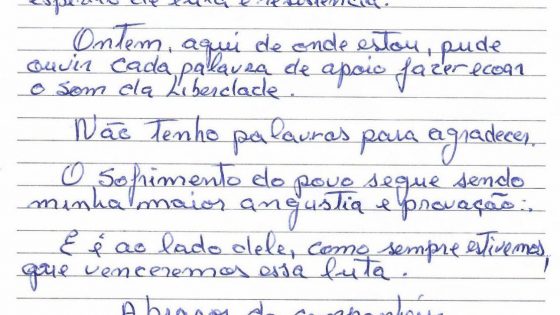 espírito de luta e resistência.
Ontem, aqui de onde estou, pude
ouvir cada palavra de apoio fazer ecoar
o som da Liberdade.
Não tenho palavras para agradecer.
O sofrimento do povo segue sendo
minha maior angustia e provação.
E é ao lado dele, como sempre estivemos,
que venceremos essa luta.
Abraços do